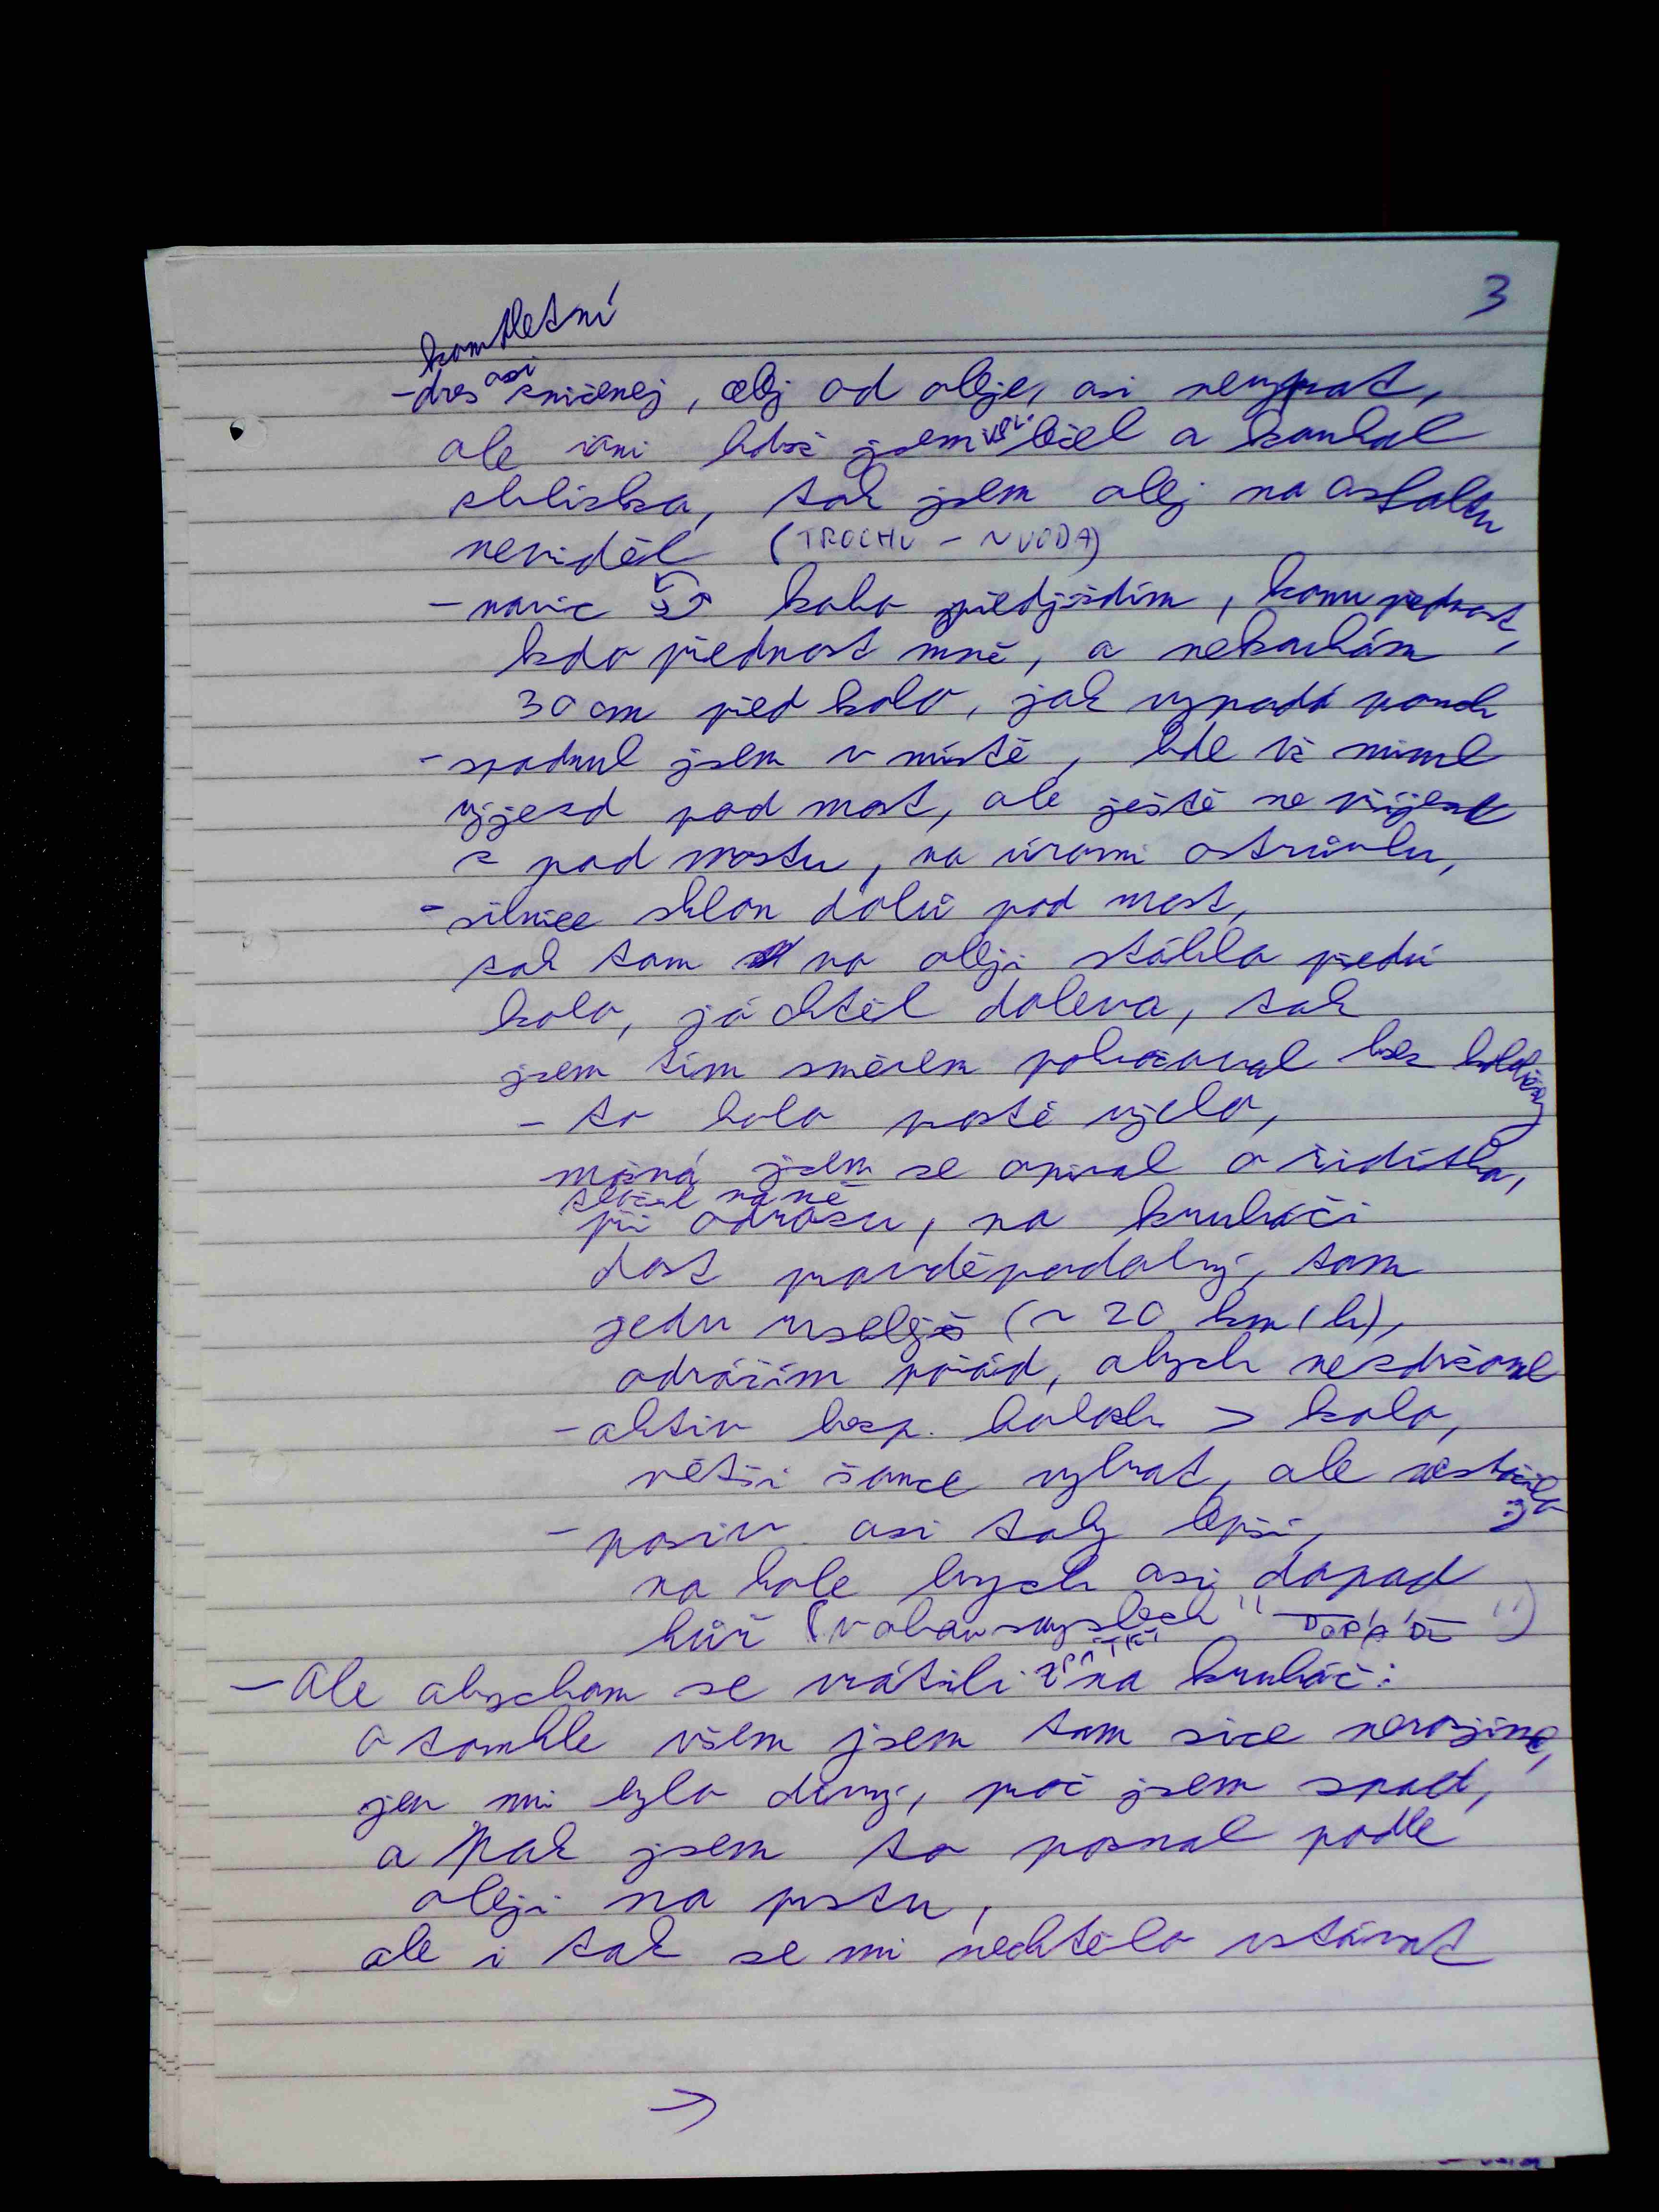 3
kompletní
- dres asi zničenej, celej od oleje, asi nevyprat,
ale ani když jsem ležel a koukal
zblízka, tak jsem olej na asfaltu
neviděl (TROCHU - ~ VODA)
- navíc koho předjíždím, komu přednost,
kdo přednost mně, a nekoukám
30 cm před kolo, jak vypadá povrch
- spadnul jsem v místě, kde už minul
výjezd pod most, ale ještě ne vjezd
z pod mostu, na úrovni ostrůvku,
- silnice sklon dolů pod most,
tak tam na oleji stáhla přední
kolo, já chtěl doleva, tak
jsem tím směrem pokračoval bez koloběžky
- to kolo prostě ujelo,
možná jsem se opíral o řidítka,
tlačil na ně
při odrazu, na kruháči
dost pravděpodobný, tam
jedu rychlejš (~ 20 km/h),
odrážím pořád, abych nezdržoval
- aktiv bezp. koloběh > kolo,
větší šance vybrat, ale nestačila
:-)
- pasiv. asi taky lepší,
na kole bych asi dopad
hůř (v obou smyslech "DOPÁD")
- Ale abychom se vrátili ZPÁTKY na kruháč:
o tomhle všem jsem tam sice nerozjímal,
jen mi bylo divný, proč jsem spadl,
a pak jsem to poznal podle
oleji na prstu,
ale i tak se mi nechtělo vstávat
→